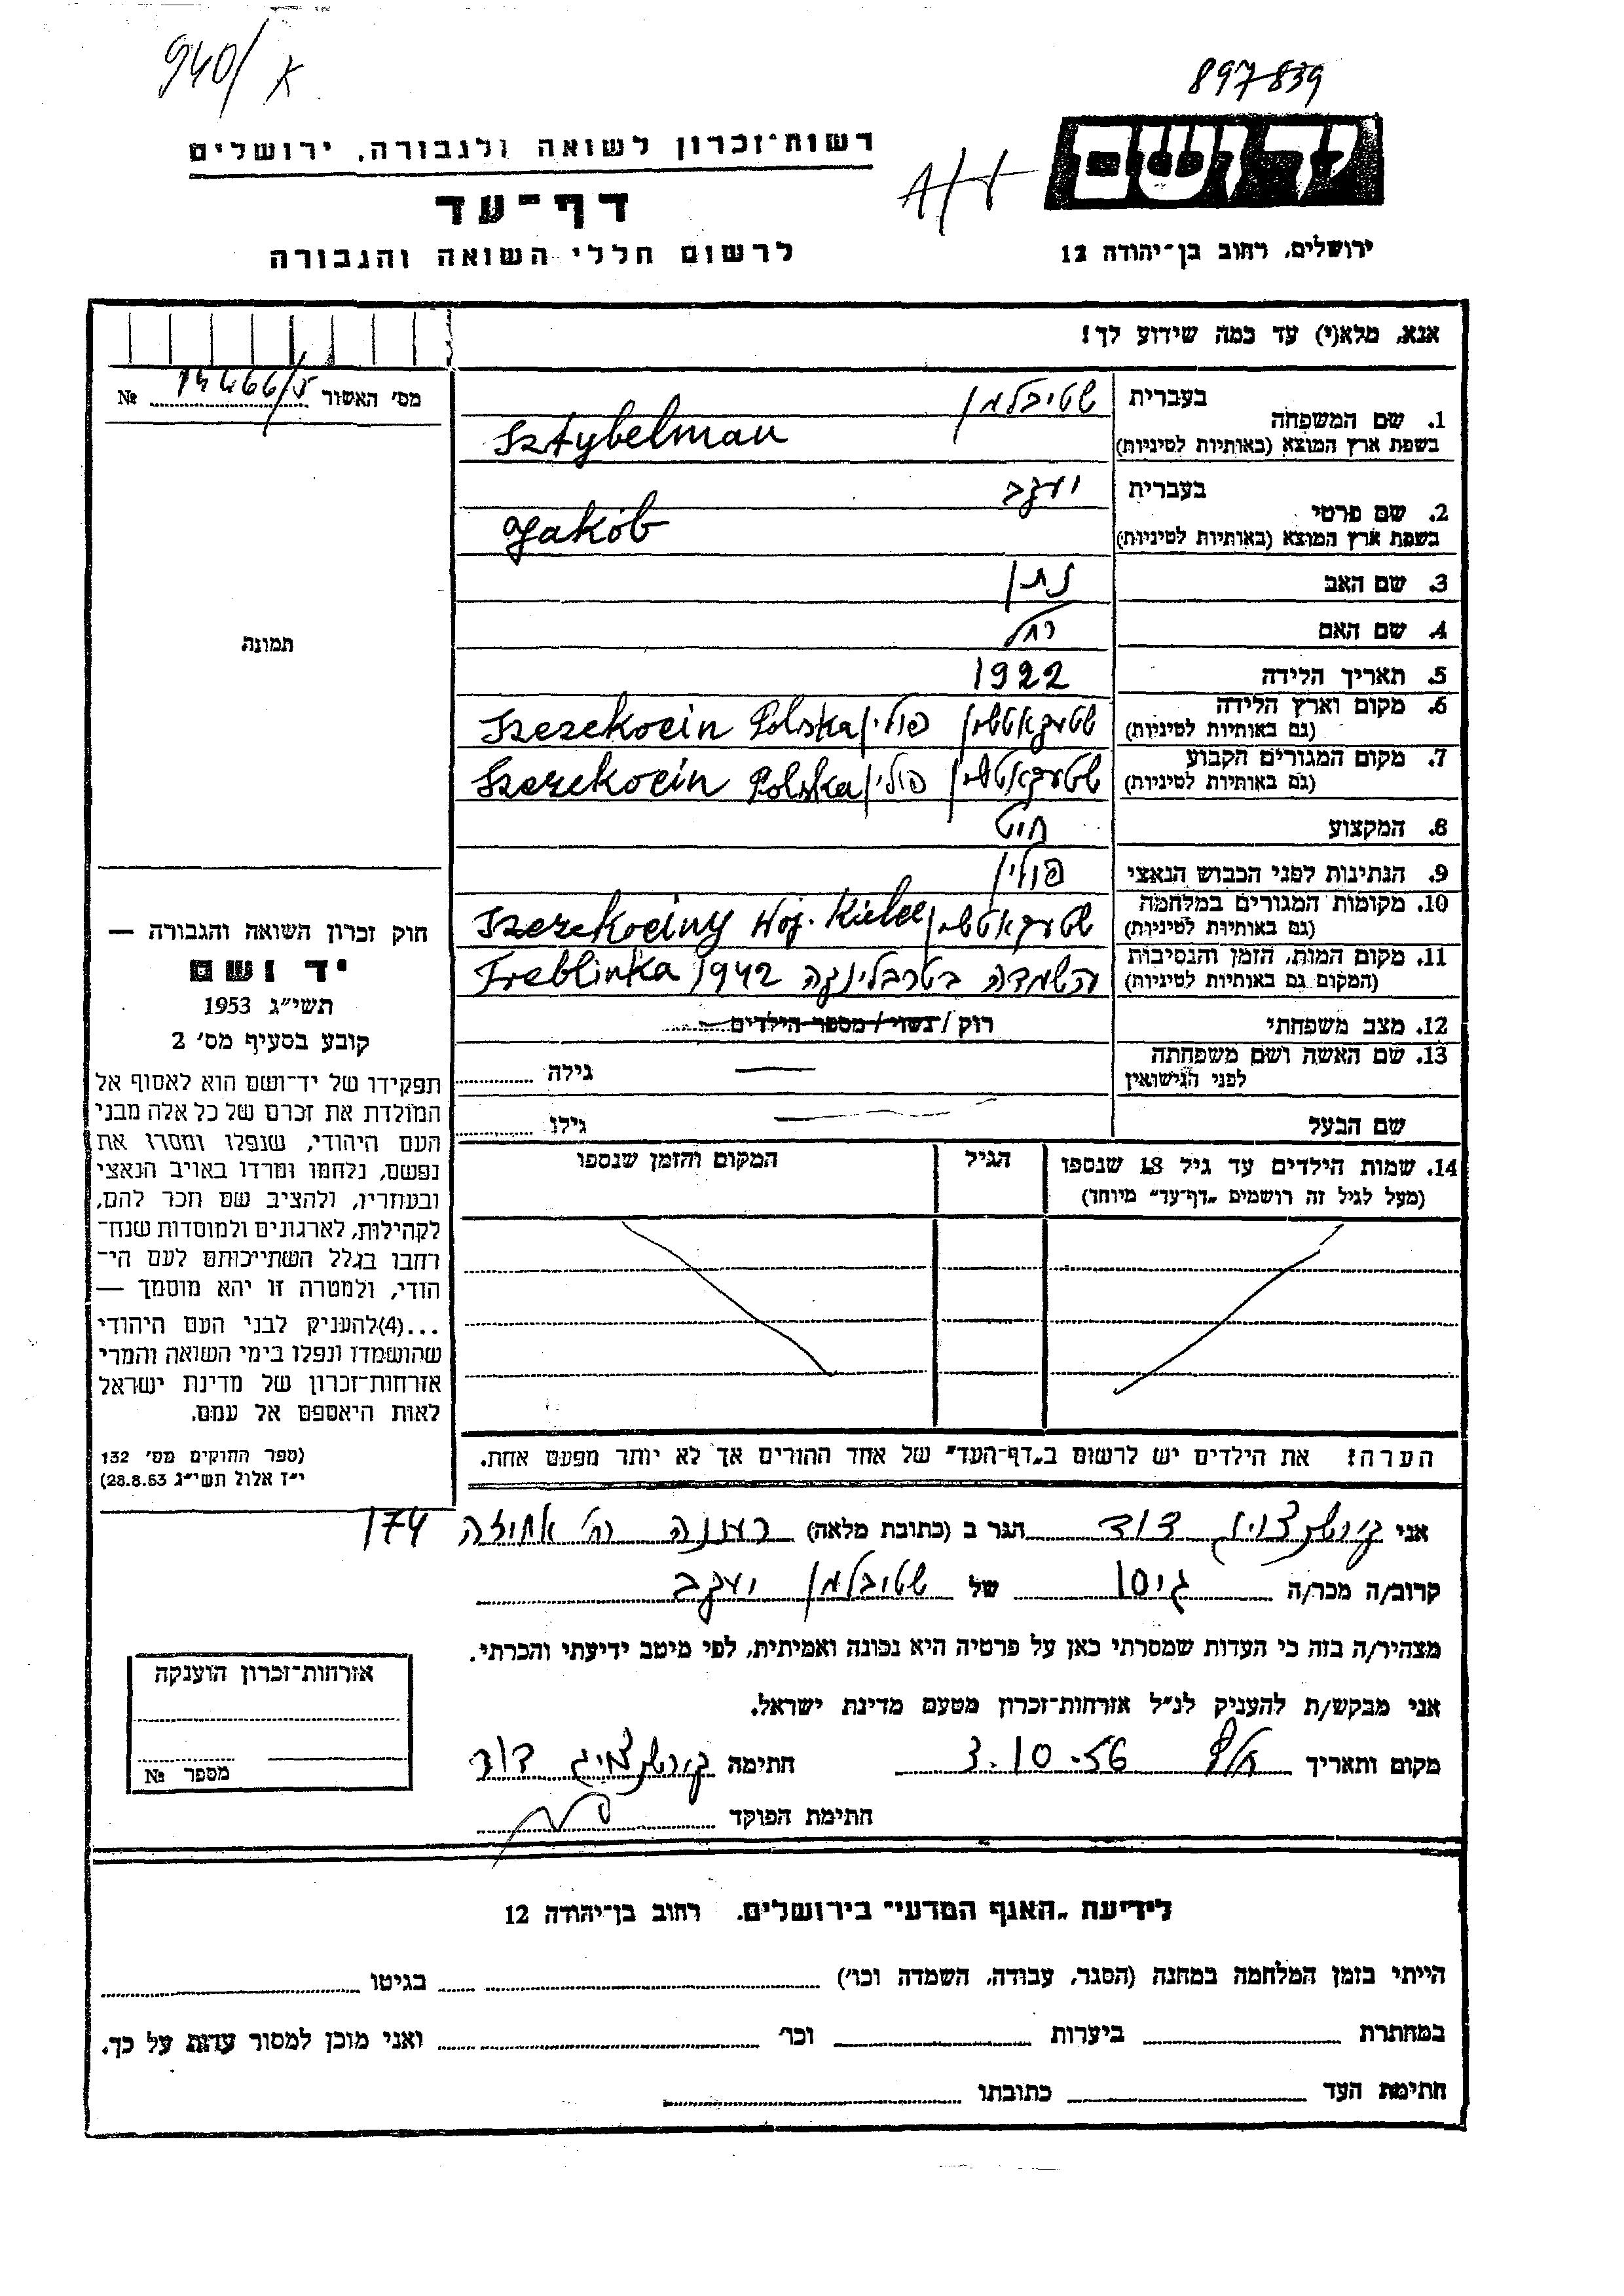 940/א
897839
יד ושם
רשות־זכרון לשואה ולגבורה, ירושלים
דף־עד
לרשום חללי השואה והגבורה
ירושלים, רחוב בן־יהודה 12
אנא, מלא(י) עד כמה שידוע לך!
מס׳ האשור №
1. שם המשפחה בעברית שטיבלמן
בשפת ארץ המוצא (באותיות לטיניות) Sztybelman
2. שם פרטי בעברית יעקב
בשפת ארץ המוצא (באותיות לטיניות) Jakób
3. שם האב נתן
4. שם האם רחל
5. תאריך הלידה 1922
6. מקום וארץ הלידה (גם באותיות לטיניות) פולין Szczekocin Polska
7. מקום המגורים הקבוע (גם באותיות לטיניות) פולין Szczekocin Polska
8. המקצוע חיט
9. הנתינות לפני הכבוש הנאצי פולין
10. מקומות המגורים במלחמה (גם באותיות לטיניות) Szczekociny Woj. Kielce
11. מקום המות, הזמן והנסיבות (המקום גם באותיות לטיניות) השמדה בטרבלינקה 1942 Treblinka
12. מצב משפחתי רוק / נשוי / מספר הילדים
13. שם האשה ושם משפחתה לפני הנישואין — גילה
שם הבעל — גילו
14. שמות הילדים עד גיל 18 שנספו (מעל לגיל זה רושמים „דף־עד״ מיוחד)
הגיל
המקום והזמן שנספו
תמונה
חוק זכרון השואה והגבורה —
יד ושם
תשי״ג 1953
קובע בסעיף מס׳ 2
תפקידו של יד־ושם הוא לאסוף אל
המולדת את זכרם של כל אלה מבני
העם היהודי, שנפלו ומסרו את
נפשם, נלחמו ומרדו באויב הנאצי
ובעוזריו, ולהציב שם וזכר להם,
לקהילות, לארגונים ולמוסדות שנח־
רחבו בגלל השתייכותם לעם הי־
הודי, ולמטרה זו יהא מוסמך —
...(4)להעניק לבני העם היהודי
שהושמדו ונפלו בימי השואה והמרי
אזרחות־זכרון של מדינת ישראל
לאות היאספם אל עמם.
(ספר החוקים מס׳ 132
י״ז אלול תשי״ג 28.8.53)
הערה! את הילדים יש לרשום ב„דף־העד״ של אחד ההורים אך לא יותר מפעם אחת.
אני דוד הגר ב (כתובת מלאה) רעננה רח׳ אחוזה 174
קרוב/ה מכר/ה גיסו של שטיבלמן יעקב
מצהיר/ה בזה כי העדות שמסרתי כאן על פרטיה היא נכונה ואמיתית, לפי מיטב ידיעתי והכרתי.
אני מבקש/ת להעניק לנ״ל אזרחות־זכרון מטעם מדינת ישראל.
מקום ותאריך 3.10.56 חתימה דוד
חתימת הפוקד
אזרחות־זכרון הוענקה
מספר №
לידיעת „האגף המדעי״ בירושלים. רחוב בן־יהודה 12
הייתי בזמן המלחמה במחנה (הסגר, עבודה, השמדה וכו׳) בגיטו
במחתרת ביערות וכו׳ ואני מוכן למסור עדות על כך.
חתימת העד כתובתו